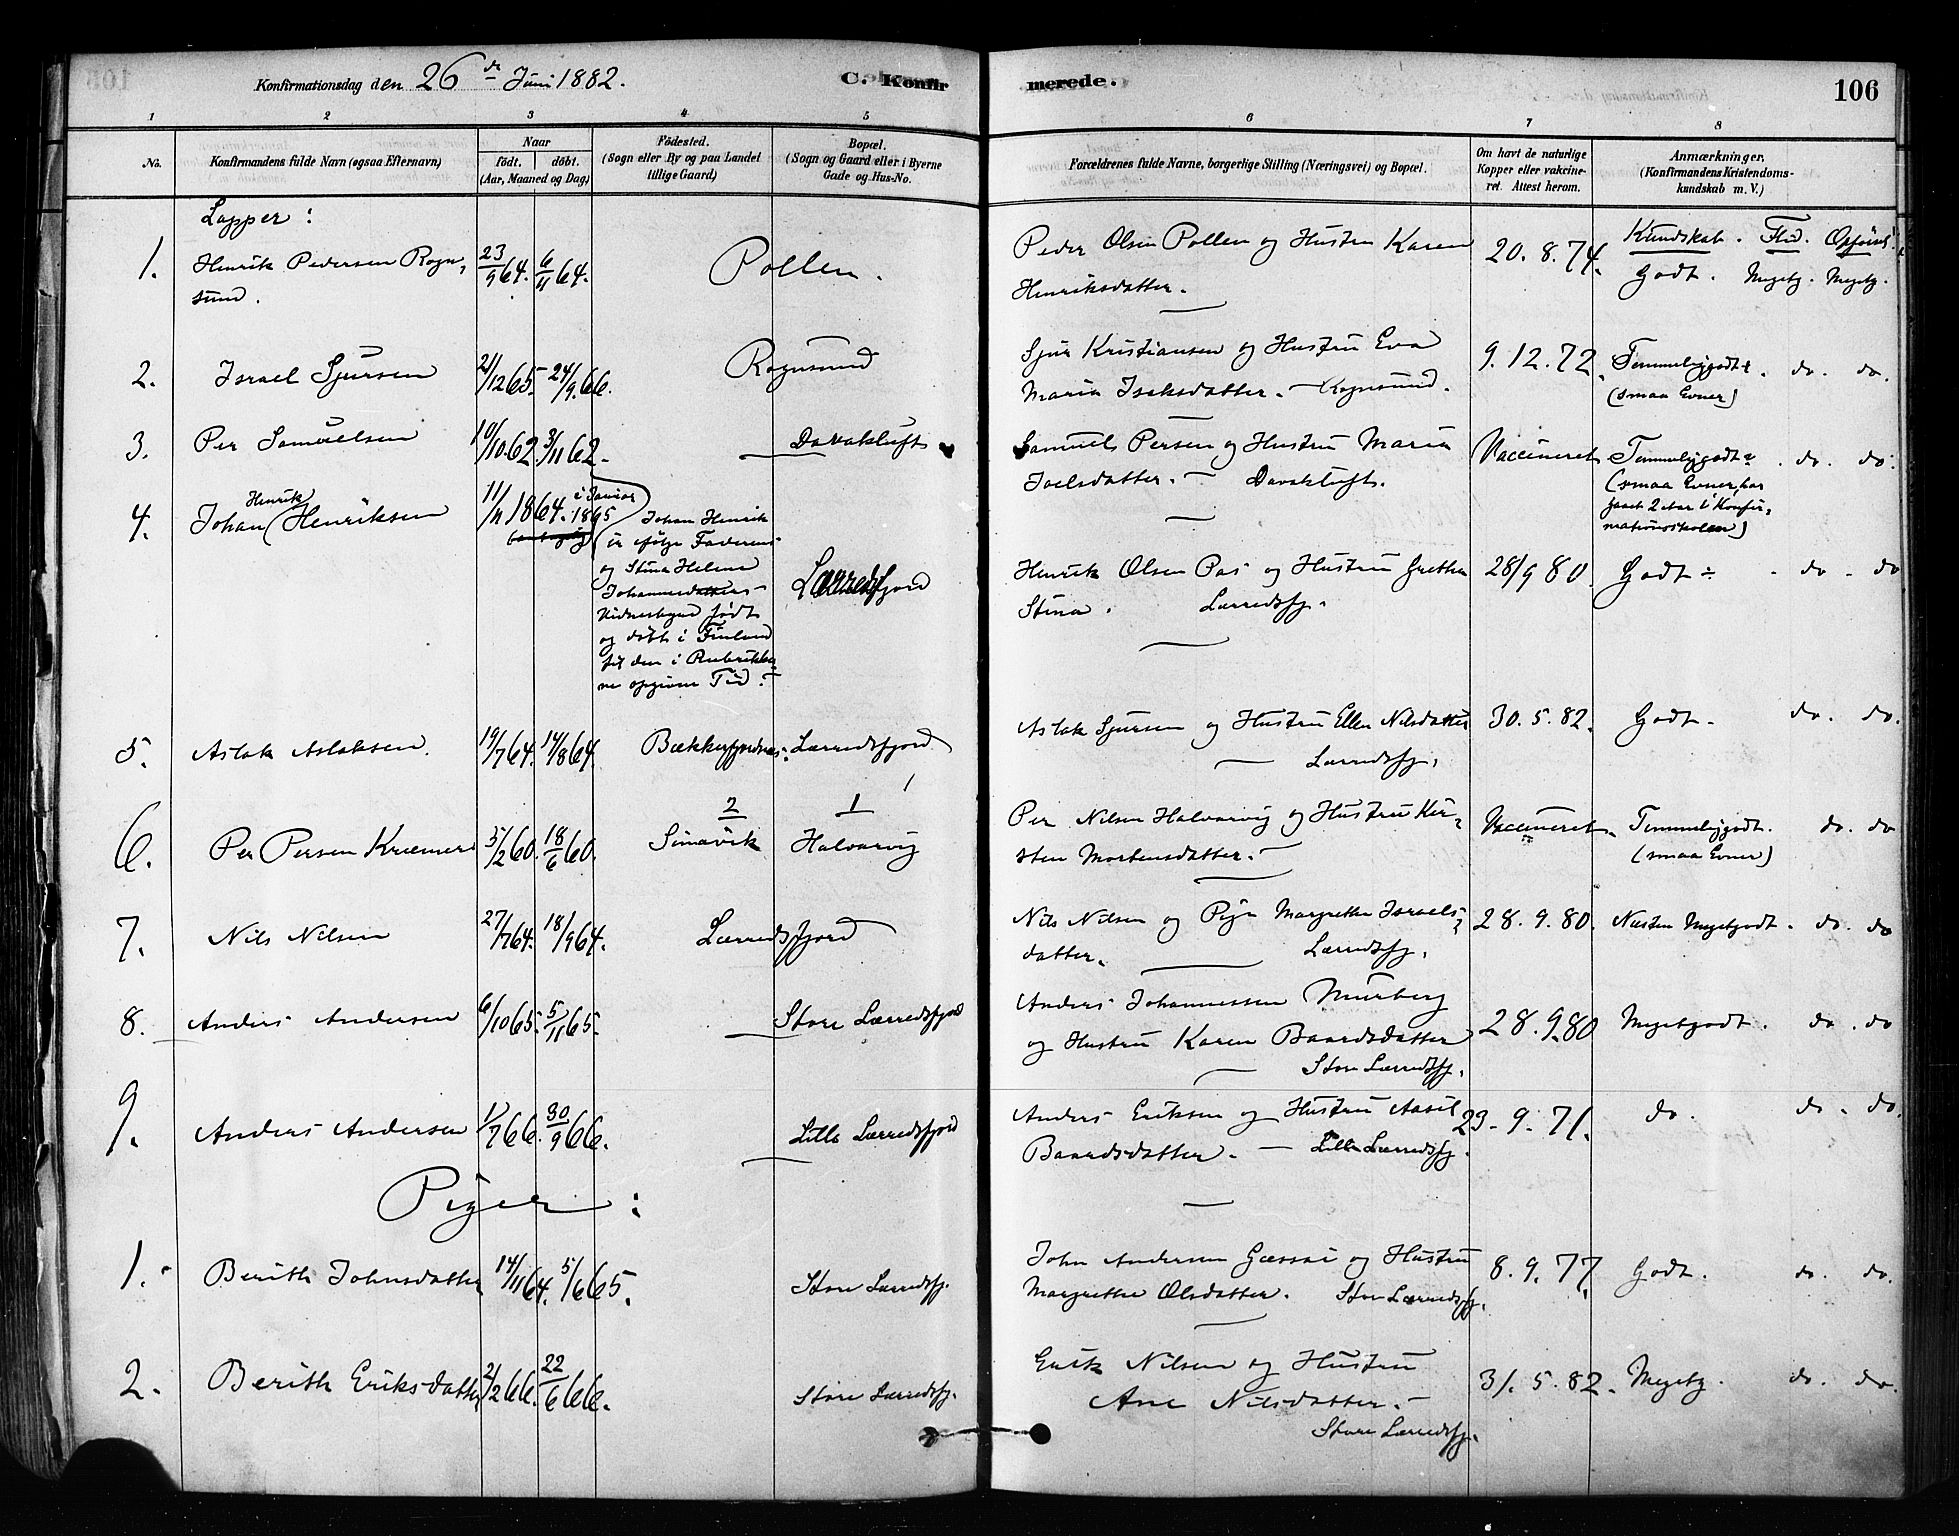 Konfirmationsdag den 26de Juni 1882.
C. Konfirmerede.
106
1 2 3 4 5 6 7 8
No.
Konfirmandens fulde Navn (ogsaa Efternavn)
Naar
födt. döbt.
(Aar, Maaned og Dag)
Födested.
(Sogn eller By og paa Landet
tillige Gaard)
Bopæl.
(Sogn og Gaard eller i Byerne
Gade og Hus-No.
Forældrenes fulde Navne, borgerlige Stilling (Næringsvei) og Bopæl.
Om havt de naturlige
Kopper eller vakcine-
ret. Attest herom.
Anmærkninger.
(Konfirmandens Kristendoms-
kundskab m. V.)
Lapper:
Kundskab. Flid. Opförsel
1. Henrik Pedersen Rogn-
sund.
23/9 64. 6/11 64.
Pollen.
Peder Olsen Pollen og Hustru Karen
Henriksdatter.
20. 8. 74.
Godt. Megetg. Megetg.
2. Israel Sjursen
21/12 65. 24/9 66.
Rognsund
Sjur Kristiansen og Hustru Eva
Maria Isaksdatter. — Rognsund.
9. 12. 72.
Temmeliggodt. do. do.
(smaa Evner)
3. Per Samuelsen
10/10 62. 3/11 62.
Davakluft
Samuel Persen og Hustru Maria
Joelsdatter. — Davakluft.
Vaccineret
Temmeliggodt. do. do.
(smaa Evner, har
gaaet 2 Aar i Konfir-
mationsskolen)
4. Johan Henrik Henriksen
11/11 1864. i Januar 1865
Johan Henrik
er ifølge Faderens
og Stina Helene
Johannesdatters
Vidnesbyrd født
og døbt i Finland
til den i Rubrikker-
ne opgivne Tid.
Lærredsfjord
Henrik Olsen Pas og Hustru Grethe
Stina. Lærredsfj.
28/9 80.
Godt ÷ do. do
5. Aslak Aslaksen.
19/7 64. 14/8 64.
Bækkerfjordnæs. Lærredsfjord
Aslak Sjursen og Hustru Ellen Nilsdatter
— Lærredsfj.
30. 5. 82.
Godt. do. do.
6. Per Persen Kræmer
5/2 60. 18/6 60.
2 1
Simavik Halvarvig
Per Nilsen Halvarvig og Hustru Kir-
sten Mortensdatter.
Vaccineret.
Temmeliggodt. do. do
(smaa Evner)
7. Nils Nilsen
27/7 64. 18/9 64.
Lærredsfjord
Nils Nilsen og Pige Margrethe Israels-
datter. Lærredsfj.
28. 9. 80.
Næsten Megetgodt. do. do
8. Anders Andersen
6/10 65. 5/11 65.
Store Lærredsfjord
Anders Johannessen Murberg
og Hustru Karen Baardsdatter
Store Lærredsfj.
28. 9. 80
Megetgodt. do. do
9. Anders Andersen
1/7 66. 30/9 66.
Lille Lærredsfjord
Anders Eriksen og Hustru Aasil
Baardsdatter. — Lille Lærredsfj.
23. 9. 71.
do. do. do.
Piger:
1. Berith Johnsdatter
14/11 64. 5/6 65.
Store Lærredsfj.
John Andersen Gæssai og Hustru
Margrethe Olsdatter. Store Lærredsfj.
8. 9. 77.
Godt. do. do.
2. Berith Eriksdatter
2/2 66. 22/6 66.
Store Lærredsfj.
Erik Nilsen og Hustru
Ane Nilsdatter.
Store Lærredsfj.
31. 5. 82.
Megetg. do. do.